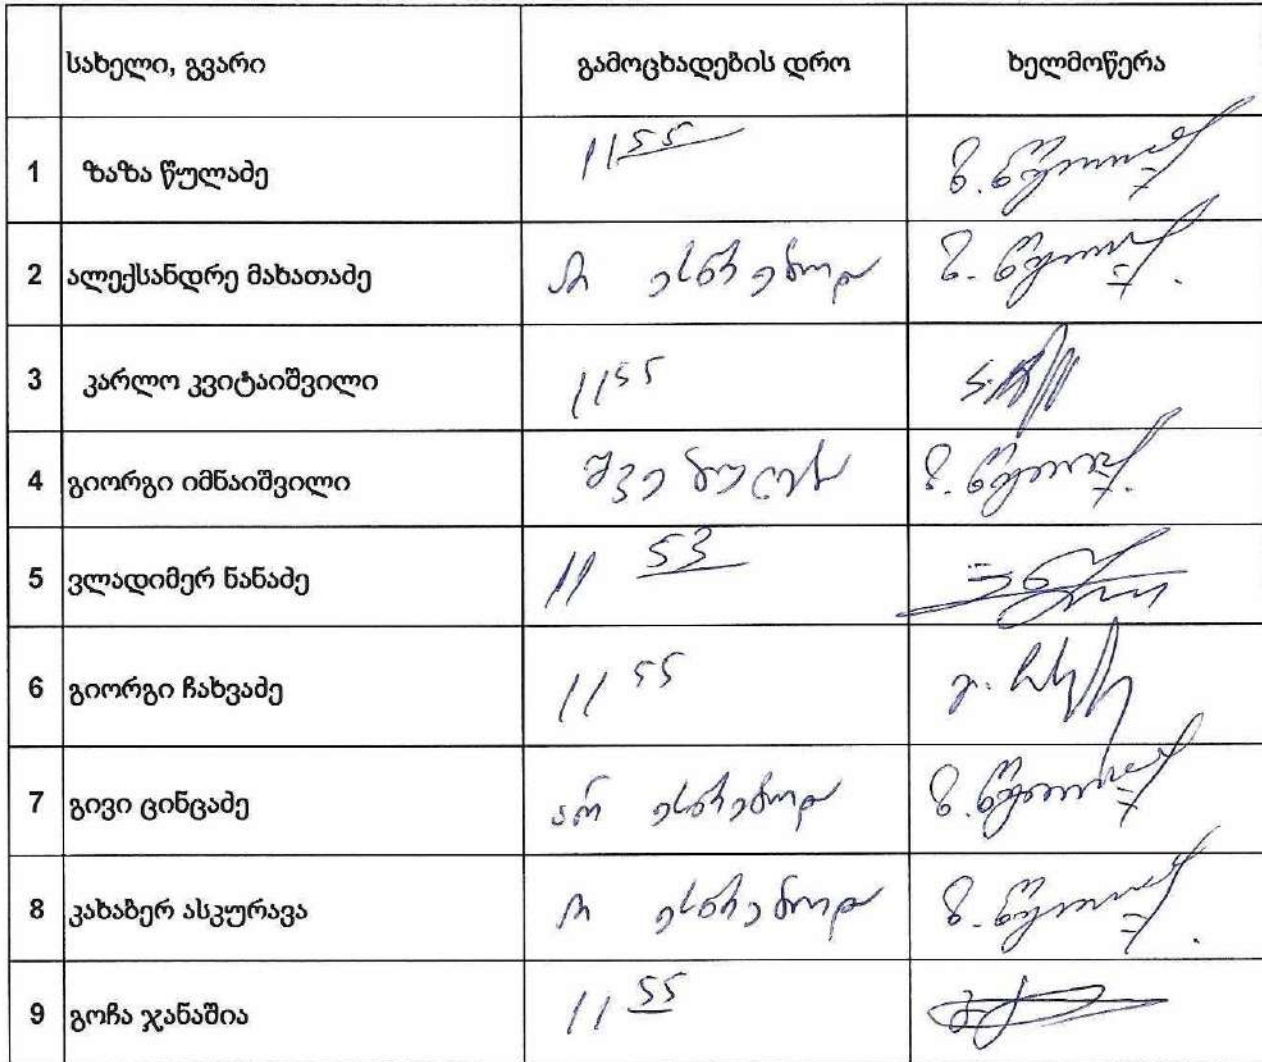 სახელი, გვარი გამოცხადების დრო ხელმოწერა
1 ზაზა წულაძე 11 55 ზ. წულაძე
2 ალექსანდრე მახათაძე არ ესწრებოდა ზ. წულაძე
3 კარლო კვიტაიშვილი 11 55
4 გიორგი იმნაიშვილი შვებულება ზ. წულაძე
5 ვლადიმერ ნანაძე 11 53
6 გიორგი ჩახვაძე 11 55
7 გივი ცინცაძე არ ესწრებოდა ზ. წულაძე
8 კახაბერ ასკურავა არ ესწრებოდა ზ. წულაძე
9 გოჩა ჯანაშია 11 55